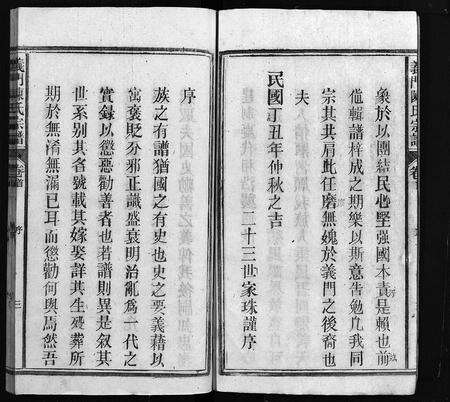 義門陳氏宗譜
卷首
象於以團結民心堅强國本責是賴也前
脩輯譜梓成之期樂以斯意告勉几我同
宗其共肩此任磨無媿於義門之後裔也
夫
民國丁丑年仲秋之吉
二十三世家珠謹序
序
族之有譜猶國之有史也史之要義藉以
寓褒貶分邪正識盛衰明治亂爲一代之
實録以懲惡勸善者也若譜則異是叙其
世系别其名號載其嫁娶詳其生殁葬所
期於無淆無漏已耳而懲勸何與焉然吾
義門陳氏宗譜
卷首
序
三